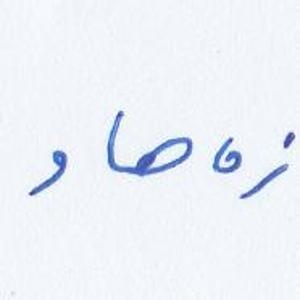 زه صاو